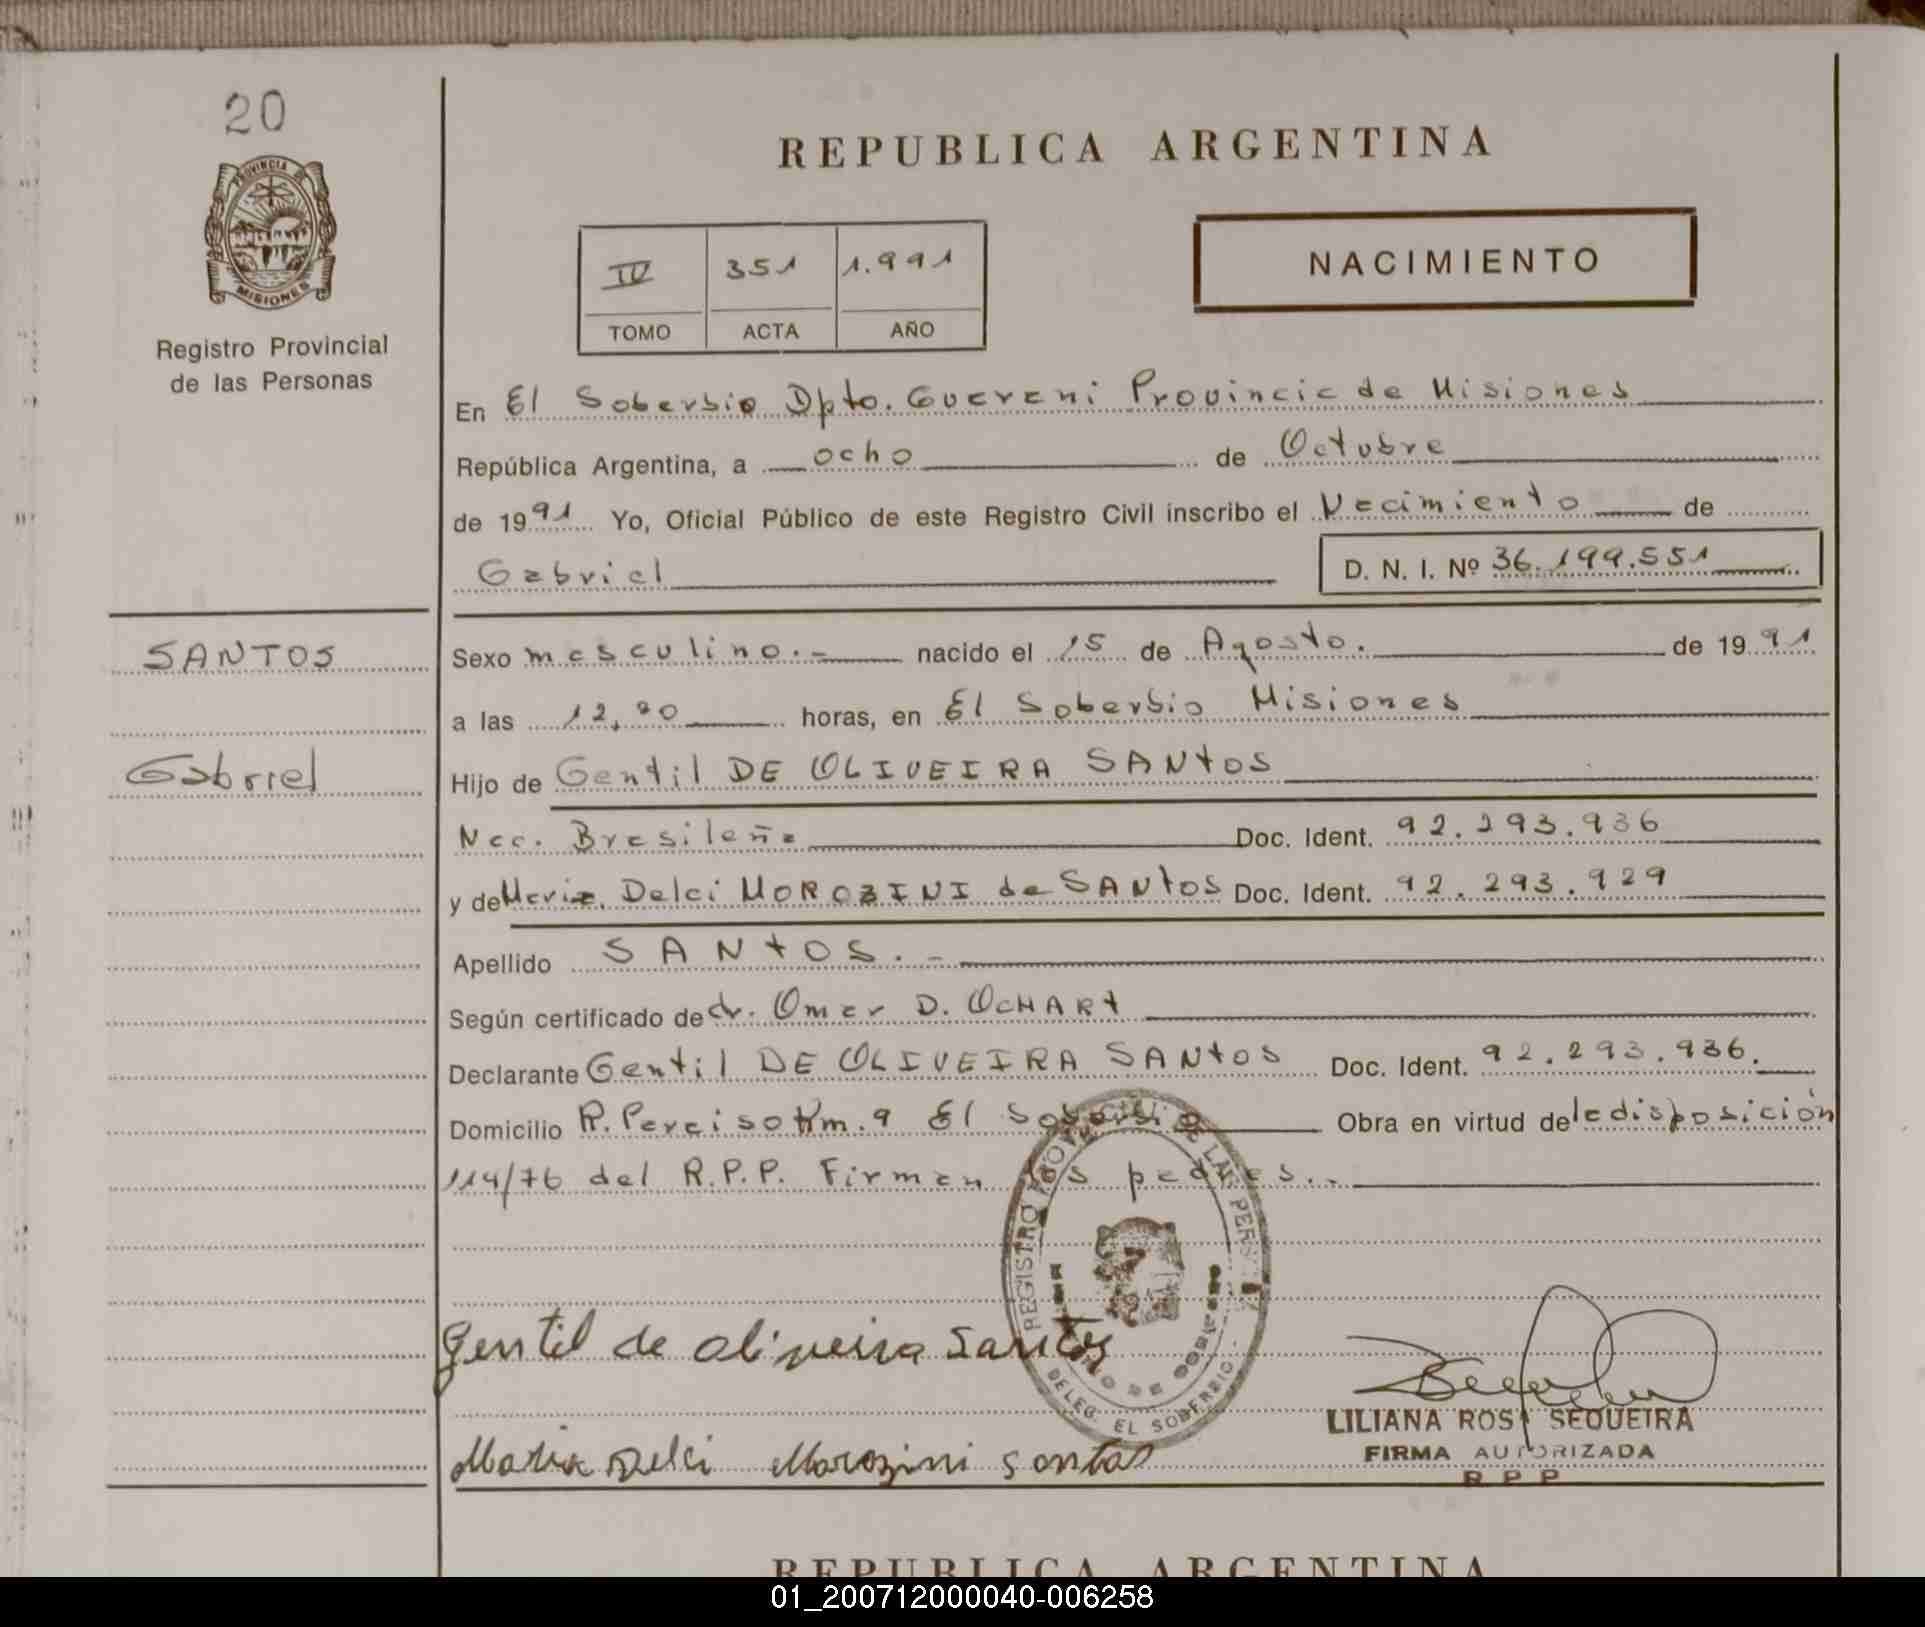 20
PROVINCIA DE
MISIONES
Registro Provincial
de las Personas
SANTOS
Gabriel
REPUBLICA ARGENTINA
IV 351 1.991
TOMO ACTA AÑO
NACIMIENTO
En El Soberbio Dpto. Guarani Provincia de Misiones
República Argentina, a ocho de Octubre
de 1991 Yo, Oficial Público de este Registro Civil inscribo el Nacimiento de
Gabriel D. N. I. Nº 36.199.551
Sexo masculino.- nacido el 15 de Agosto. de 1991
a las horas, en El Soberbio Misiones
Hijo de Gentil DE OLIVEIRA SANTOS
Nac. Brasileña Doc. Ident. 92.293.936
y de Maria Delci MOROZINI de SANTOS Doc. Ident. 92.293.929
Apellido SANTOS.-
Según certificado de dr. Omar D. OCHART
Declarante Gentil DE OLIVEIRA SANTOS Doc. Ident. 92.293.936.
Domicilio R. Paraiso Km. 9 El Soberbio Obra en virtud de la disposición
114/76 del R.P.P. Firman los padres.-
REGISTRO PROVINCIAL DE LAS PERS
DELEG. EL SOBERBIO
Gentil de oliveira Santos
Maria Delci Morozini Santos
LILIANA ROSA SEQUEIRA
FIRMA AUTORIZADA
R P P
REPUBLICA ARGENTINA
01_200712000040-006258